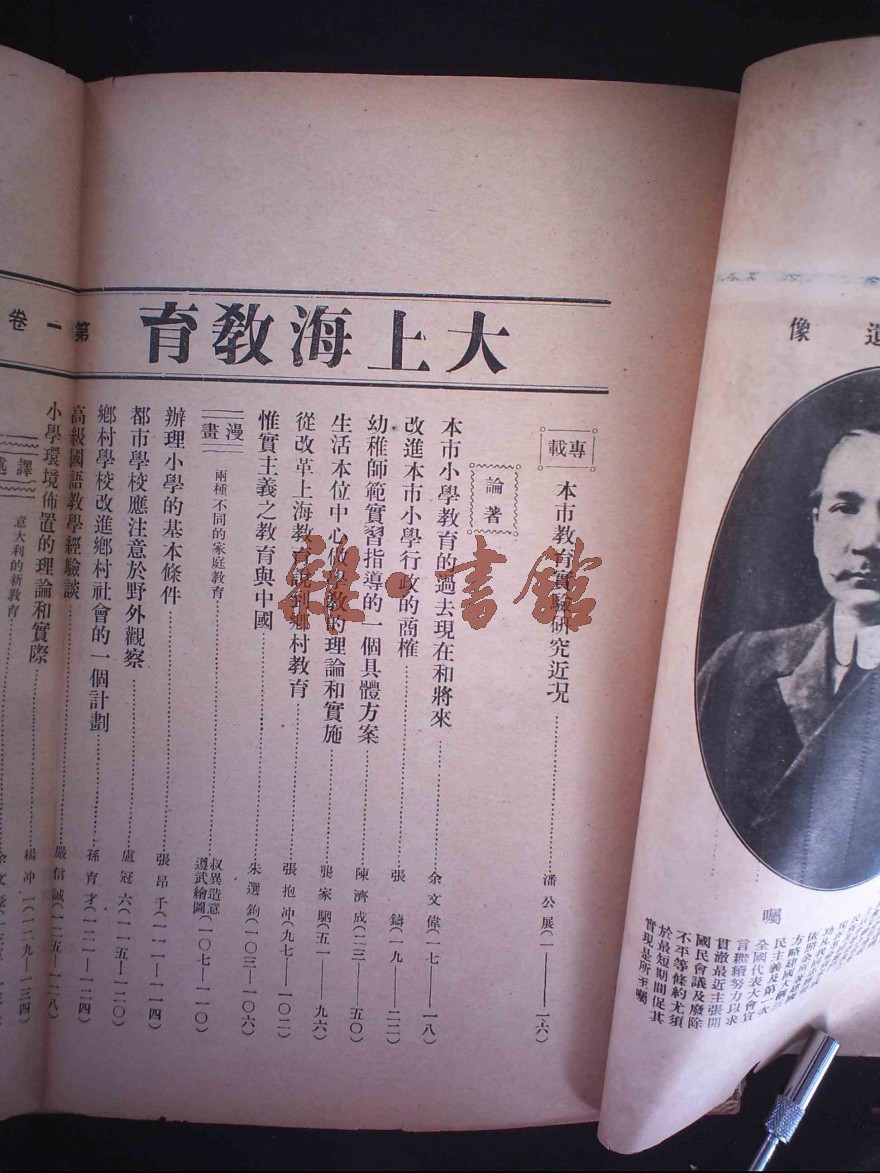 遺像
囑
民主義及第一次
全國代表大會宣
言繼續努力以求
貫澈最近主張開
國民會議及廢除
不平等條約尤須
於最短期間促其
實現是所至囑
大上海教育
第一卷
專載
本市教育實驗研究近況 潘公展(一——一六)
論著
本市小學教育的過去現在和將來 余文偉(一七——一八)
改進本市小學行政的商榷 張鑄(一九——二二)
幼稚師範實習指導的一個具體方案 陳濟成(二三——五〇)
生活本位中心做學教的理論和實施 龔家駟(五一——九六)
從改革上海教育說到鄉村教育 張抱冲(九七——一〇二)
惟實主義之教育與中國 朱選鈞(一〇三—一〇六)
漫畫
兩種不同的家庭教育 叔異造意 遵武繪圖(一〇七—一一〇)
辦理小學的基本條件 張昂千(一一一—一一四)
都市學校應注意於野外觀察 盧冠六(一一五—一二〇)
鄉村學校改進鄉村社會的一個計劃 孫育才(一二一—一二四)
高級國語教學經驗談 嚴信誠(一二五—一二八)
小學環境佈置的理論和實際 楊冲(一二九—一三四)
譯述
意大利的新教育 余文
雜·書館